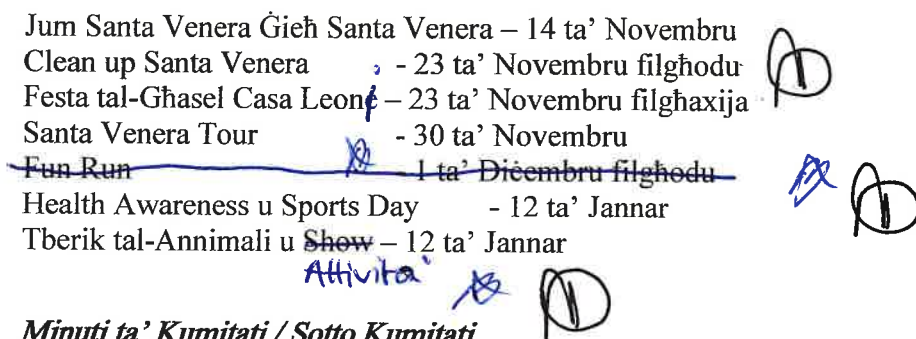 Jum Santa Venera Ġieħ Santa Venera – 14 ta’ Novembru
Clean up Santa Venera - 23 ta’ Novembru filgħodu
Festa tal-Għasel Casa Leone – 23 ta’ Novembru filgħaxija
Santa Venera Tour - 30 ta’ Novembru
Fun Run - 1 ta’ Diċembru filgħodu
Health Awareness u Sports Day - 12 ta’ Jannar
Tberik tal-Annimali u Show – 12 ta’ Jannar
Attivita`
Minuti ta’ Kumitati / Sotto Kumitati